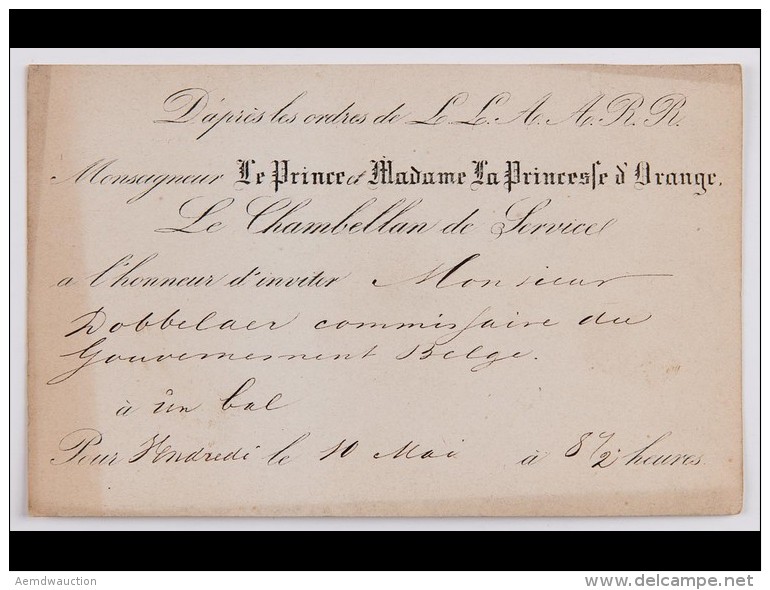 D'après les ordres de L. L. A. A. R. R.
Monseigneur Le Prince et Madame La Princesse d'Orange.
Le Chambellan de Service
a l'honneur d'inviter Monsieur
Dobbelaer commissaire du
Gouvernement Belge.
à un bal
Pour Vendredi le 10 Mai à 8 1/2 heures.
Aemdwauction
delcampe.net